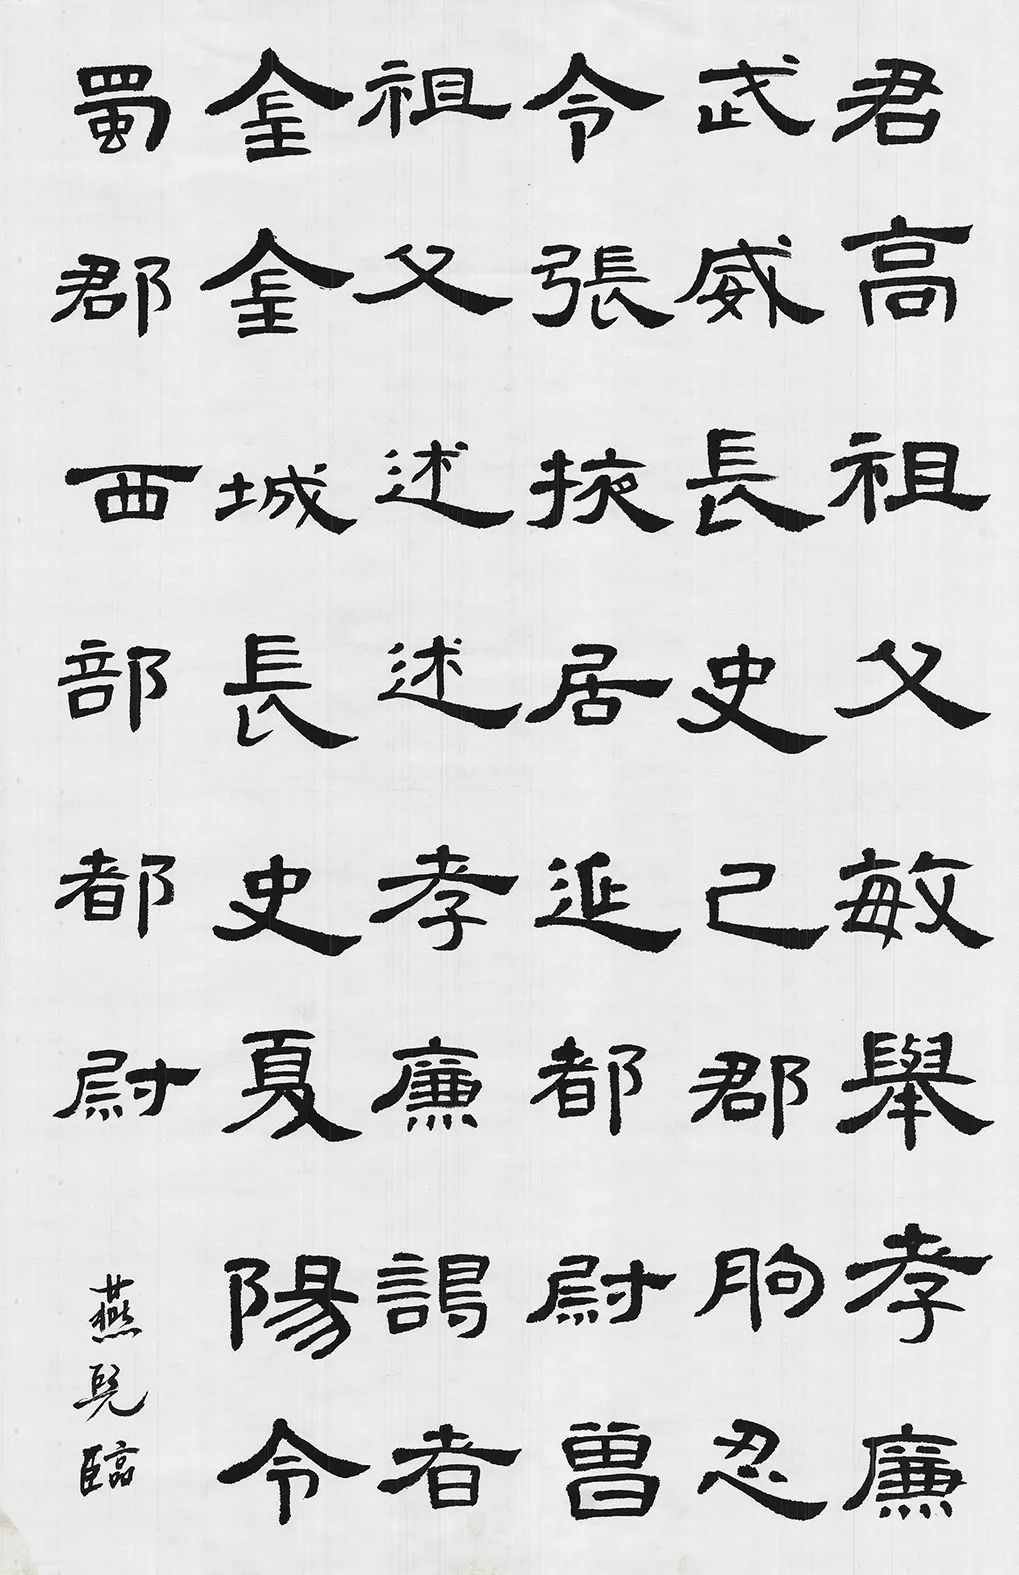 君高祖父敏舉孝廉
武威長史己郡朐忍
令張掖居延都尉曾
祖父述述孝廉謁者
金金城長史夏陽令
蜀郡西部都尉
燕臨